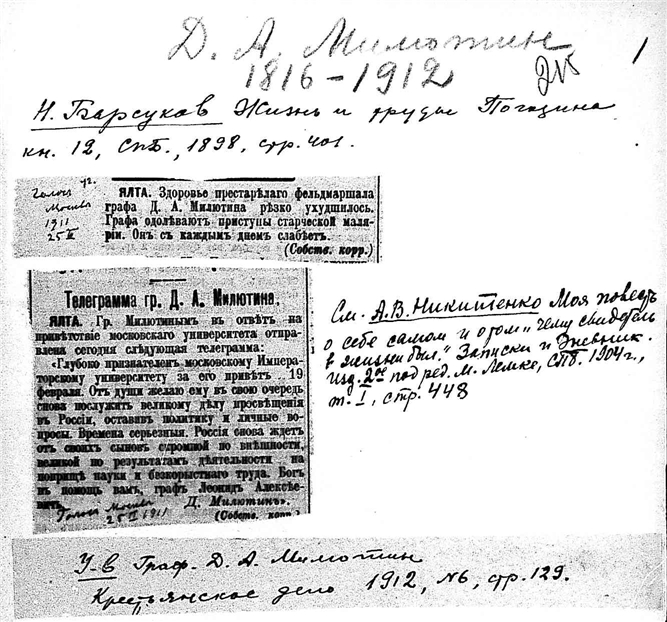 Д. А. Милютин
1816-1912
1
Н. Барсуков Жизнь и труды Погодина
кн. 12, СПБ., 1898, стр. 401.
Голос
Москвы
1911
25 II
ЯЛТА. Здоровье престарѣлаго фельдмаршала
графа Д. А. Милютина рѣзко ухудшилось.
Графа одолѣвают приступы старческой маля-
ріи. Онъ съ каждымъ днемъ слабѣетъ.
(Собств. корр.)
Телеграмма гр. Д. А. Милютина.
ЯЛТА. Гр. Милютинымъ въ отвѣтъ на
привѣтствіе московскаго университета отпра-
влена сегодня слѣдующая телеграмма:
«Глубоко признателенъ московскому Импера-
торскому университету за его привѣтъ 19
февраля. Отъ души желаю ему въ свою очередь
снова послужить великому дѣлу просвѣщенія
въ Россіи, оставивъ политику и личные во-
просы. Времена серьезныя. Россія снова ждетъ
отъ своихъ сыновъ скромной по внѣшности,
великой по результатамъ дѣятельности на
поприщѣ науки и безкорыстнаго труда. Богъ
въ помощь вамъ, графъ Леонидъ Алексѣе-
вичъ. Д. Милютинъ».
(Собств. корр.)
Голос Москвы
25 II 1911
См. А.В. Никитенко Моя повесть
о себе самом и о том „чему свидетель
в жизни был." Записки и Дневник.
изд. 2ое под ред. М. Лемке, СПБ. 1904 г.,
т. I, стр. 448
У-в Граф. Д. А. Милютин
Крестьянское дело 1912, №6, стр. 129.